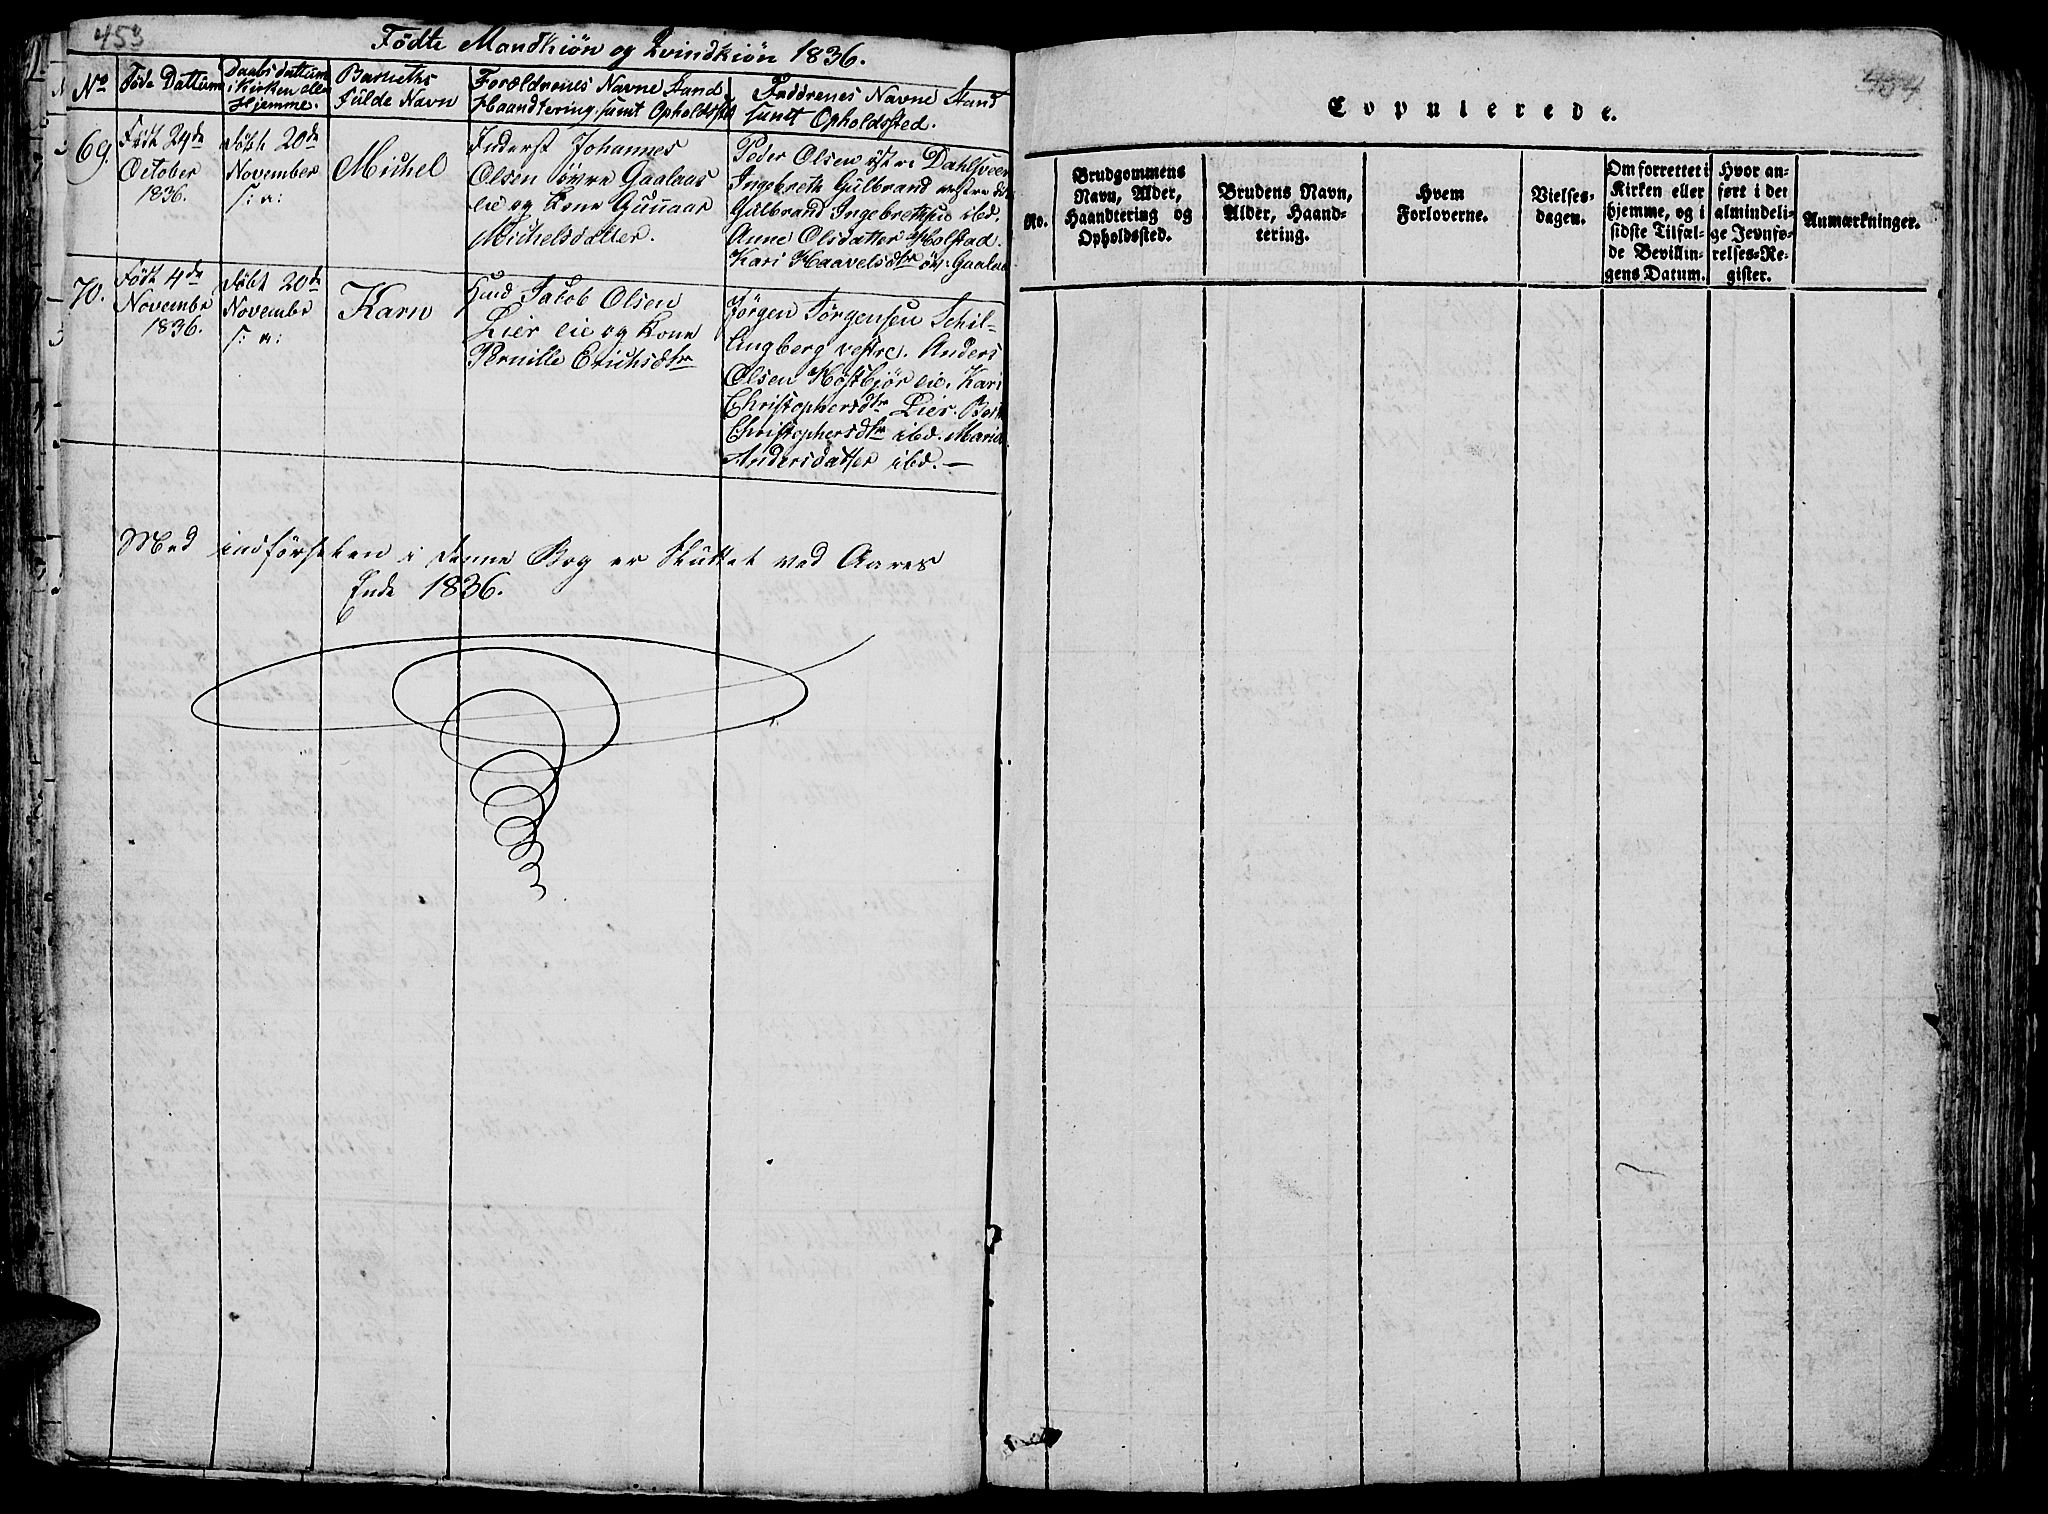 453
Födte Mandkiön og Qvindkiön 1836.
No
Föde Dattum
Daabsdattum
i Kirken eller
Hjemme.
Barnets
Fulde Navn
Forældrenes Navne Stand
Haandtering, samt Opholdssted
Faddrenes Navne Stand
samt Opholdssted.
69.
Födt 29de
October
1836.
döbt 20de
November
s: a:
Michel
Inderst Johannes
Olsen övre Gaalaas
eie og Kone Gunnaar
Michelsdatter.
Peder Olsen östre Dahlsveen
Ingebreth Gulbrand vestre do
Gulbrand Ingebrethsen ibd.
Anne Olsdatter Holstad.
Kari Haavelsdtr öv: Gaalaas
70.
Födt 4de
Novembr
1836.
döbt 20de
Novembr
s: a:
Karn
Huusmd Jacob Olsen
Lier eie og Kone
Pernille Erichsdtr
Jörgen Jörgensen Schil-
lingberg vestre. Anders
Olsen Höstbjör eie. Kari
Christophersdtr Lier.
Christophersdtr ibd. Maria
Andersdatter ibd. —
Med indförselen i denne Bog er sluttet ved Aarets
Ende 1836.
454
Copulerede.
No.
Brudgommens
Navn, Alder,
Haandtering og
Opholdssted.
Brudens Navn,
Alder, Haand-
tering.
Hvem
Forloverne.
Vielses-
dagen.
Om forrettet i
Kirken eller
hjemme, og i
sidste Tilfæl-
de Bevillin-
gens Datum.
Hvor an-
ført i det
almindeli-
ge Jevnfø-
relses-Re-
gister.
Anmærkninger.